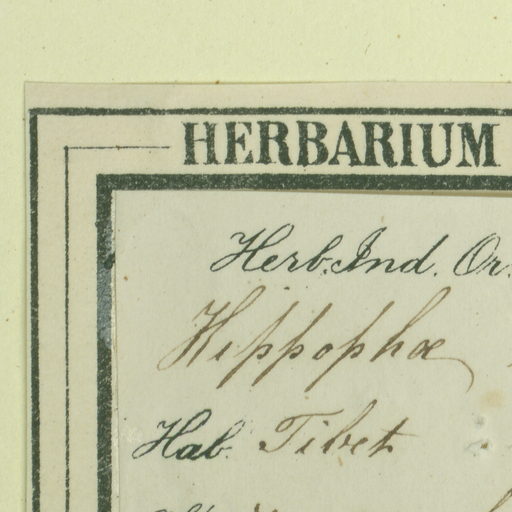 HERBARIUM
Herb. Ind. Or.
Hippophæ
Hab. Tibet